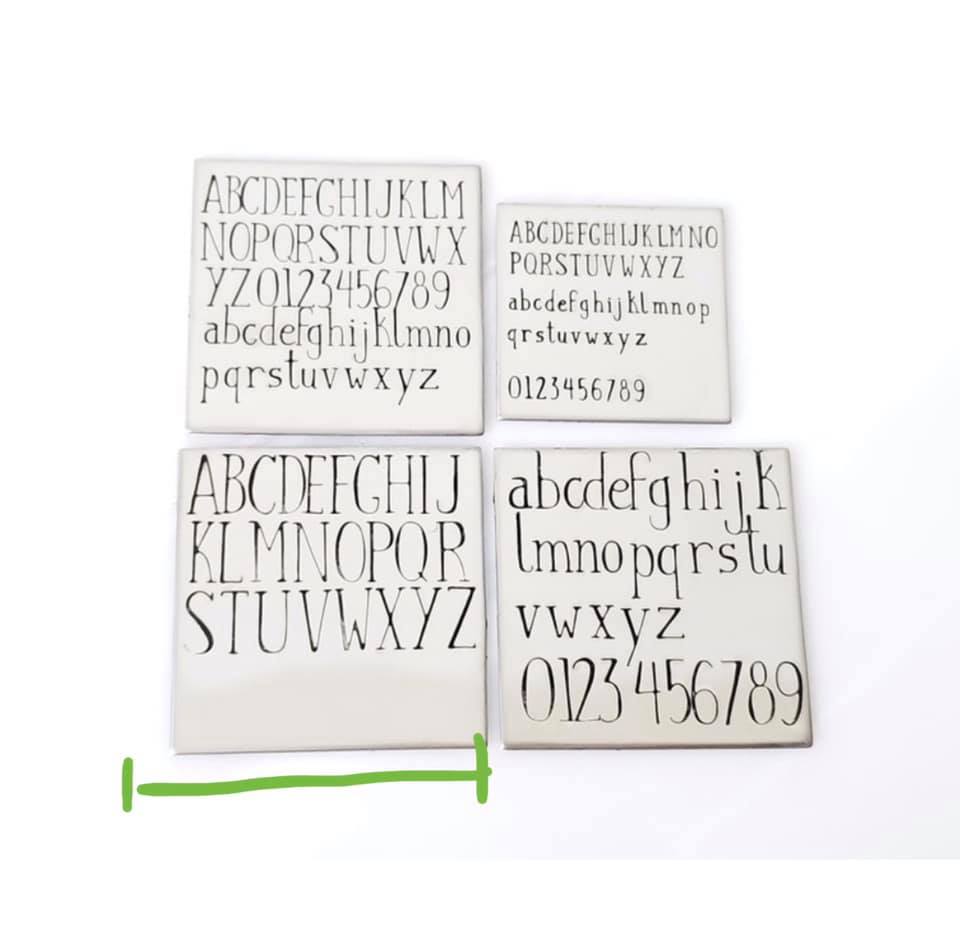 ABCDEFGHIJKLM
NOPQRSTUVWX
YZ0123456789
abcdefghijklmno
pqrstuvwxyz
ABCDEFGHIJKLMNO
PQRSTUVWXYZ
abcdefghijklmnop
qrstuvwxyz
0123456789
ABCDEFGHIJ
KLMNOPQR
STUVWXYZ
abcdefghijk
lmnopqrstu
vwxyz
0123456789